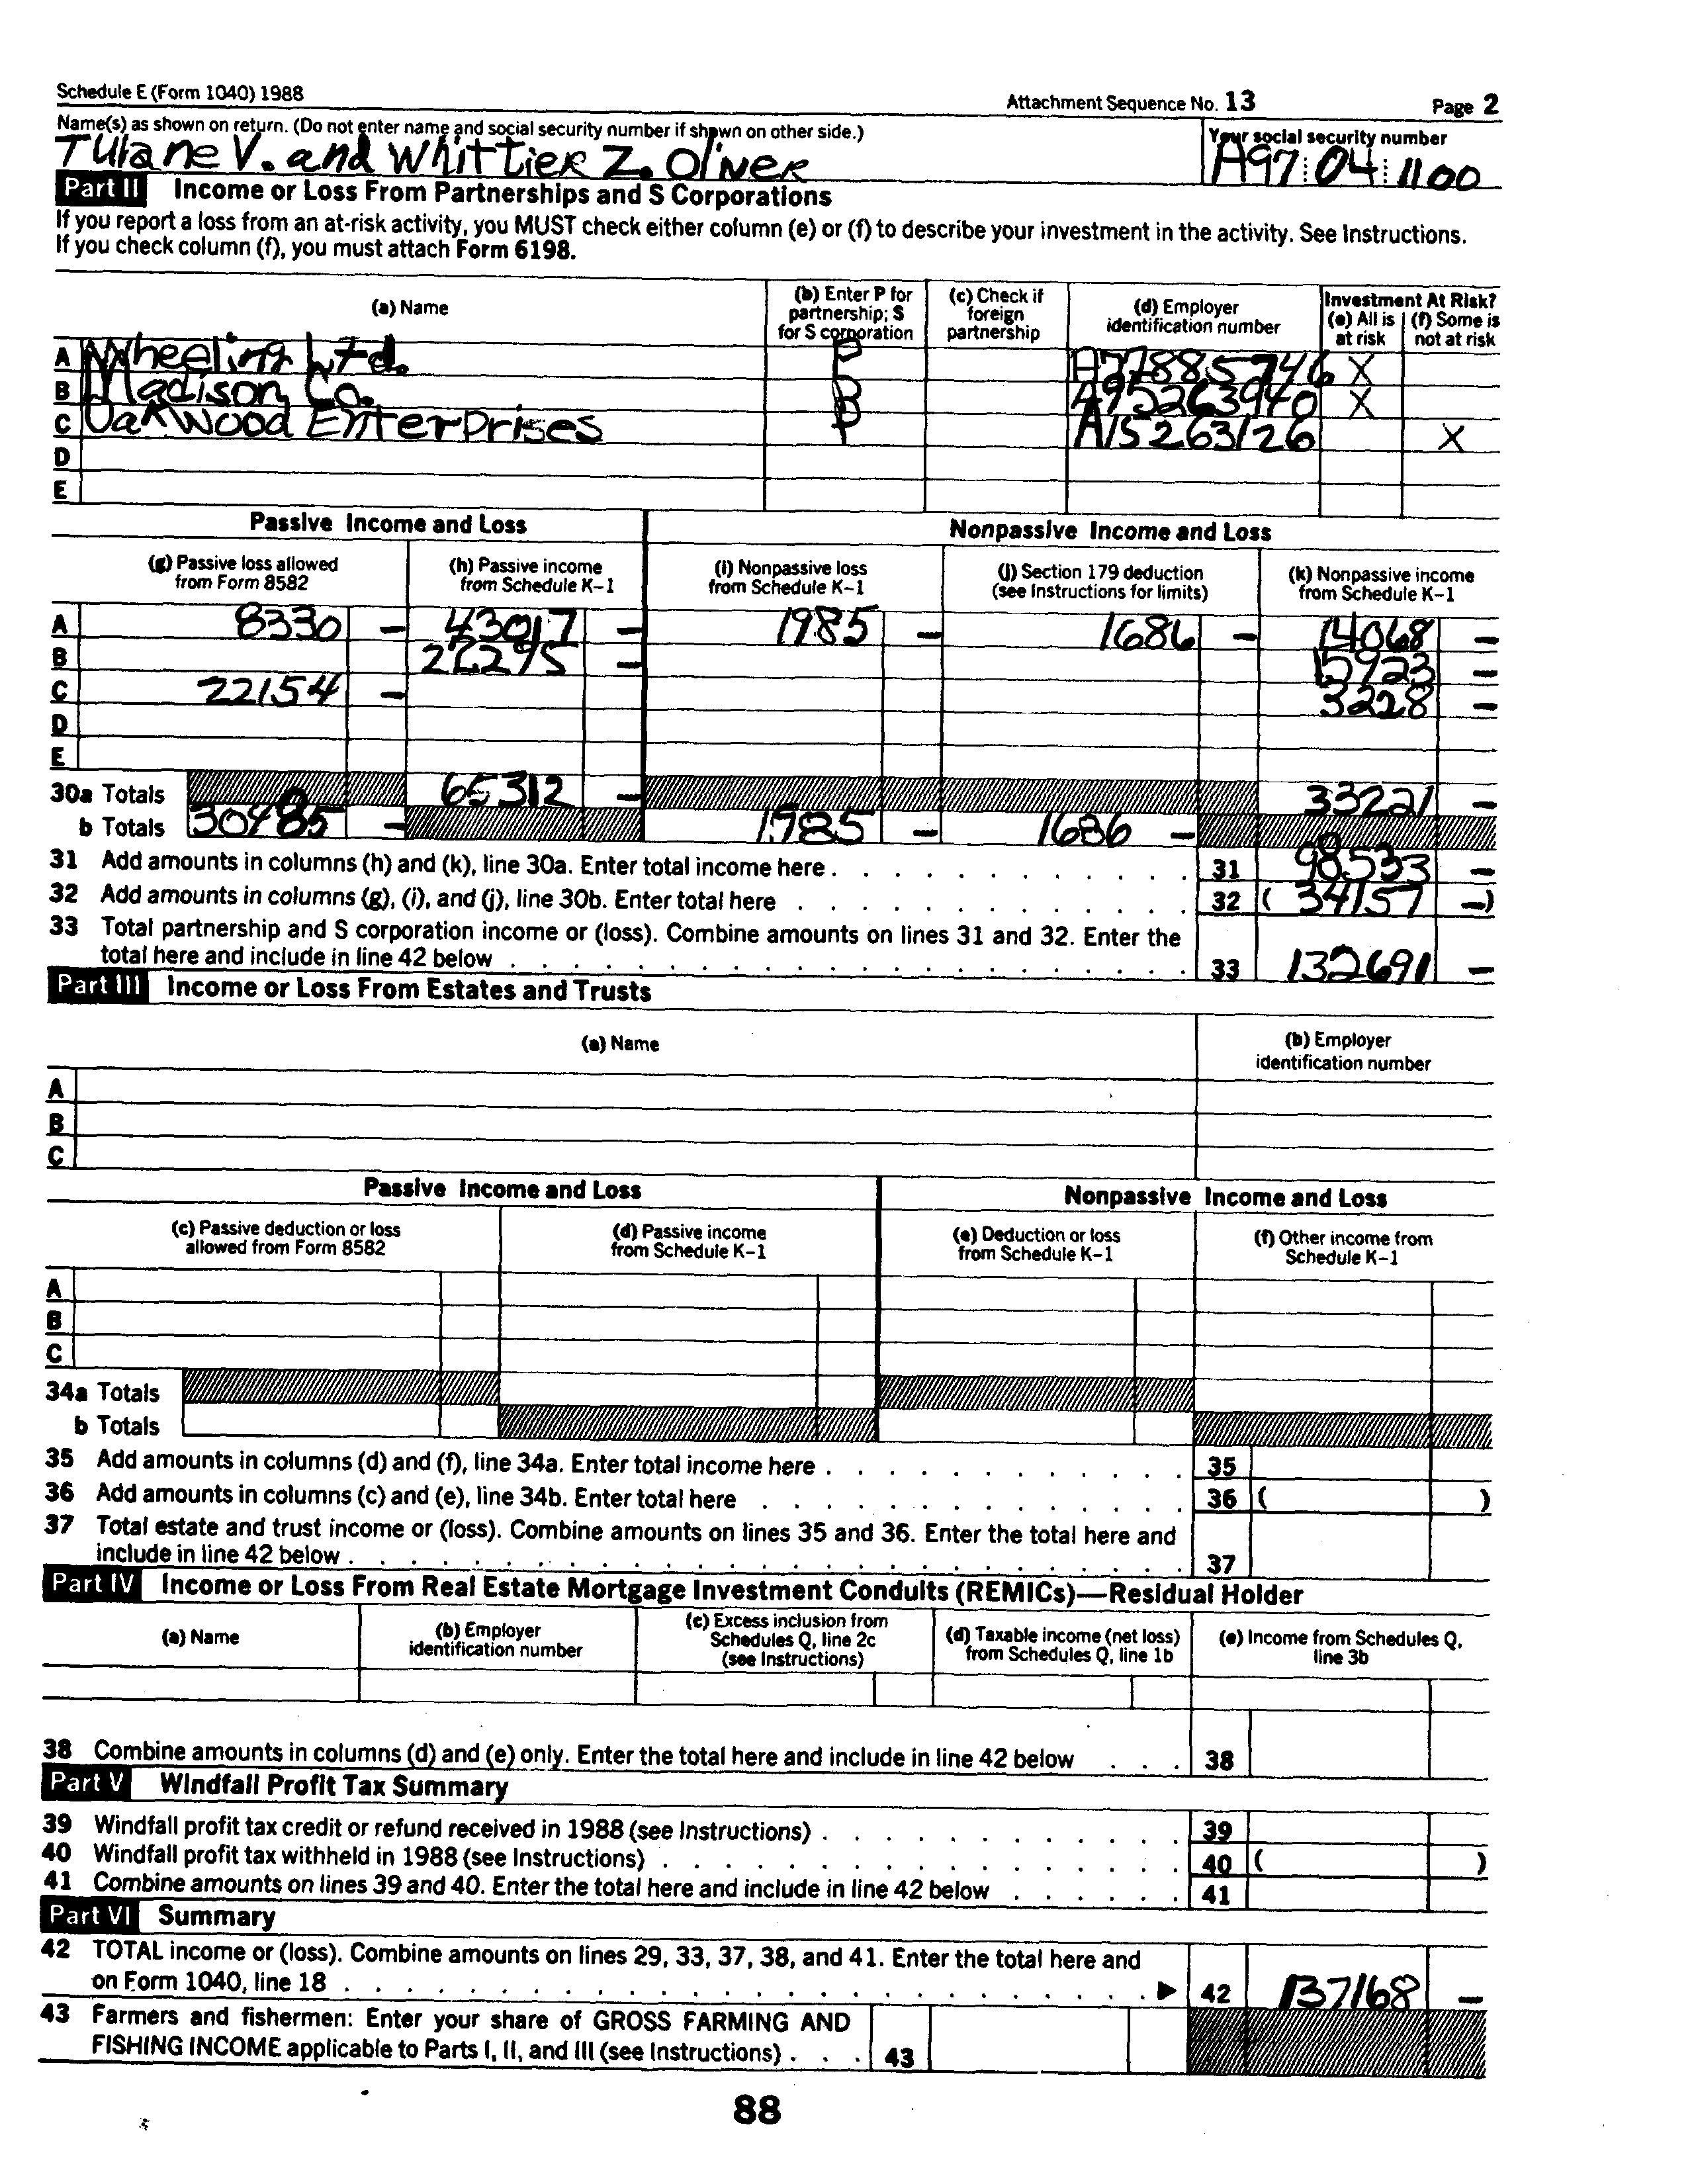 Schedule E (Form 1040) 1988 Attachment Sequence No. 13 Page 2
Name(s) as shown on return. (Do not enter name and social security number if shown on other side.) Your social security number
Tulane V. and Whittier Z. Oliver A97 04 1100
Part II Income or Loss From Partnerships and S Corporations
If you report a loss from an at-risk activity, you MUST check either column (e) or (f) to describe your investment in the activity. See Instructions.
If you check column (f), you must attach Form 6198.
(a) Name (b) Enter P for partnership; S for S corporation (c) Check if foreign partnership (d) Employer identification number Investment At Risk? (e) All is at risk (f) Some is not at risk
A Wheeling Ltd. P A77885746 X
B Madison Co. P A95263940 X
C Oakwood Enterprises P A15263126 X
D
E
Passive Income and Loss Nonpassive Income and Loss
(g) Passive loss allowed from Form 8582 (h) Passive income from Schedule K-1 (i) Nonpassive loss from Schedule K-1 (j) Section 179 deduction (see Instructions for limits) (k) Nonpassive income from Schedule K-1
A 8330 – 43017 – 1985 – 1686 – 14068 –
B 22295 – 15923 –
C 22154 – 3228 –
D
E
30a Totals 65312 – 33221 –
b Totals 30485 – 1985 – 1686 –
31 Add amounts in columns (h) and (k), line 30a. Enter total income here . 31 98533 –
32 Add amounts in columns (g), (i), and (j), line 30b. Enter total here 32 ( 34157 –)
33 Total partnership and S corporation income or (loss). Combine amounts on lines 31 and 32. Enter the
total here and include in line 42 below 33 132691 –
Part III Income or Loss From Estates and Trusts
(a) Name (b) Employer identification number
A
B
C
Passive Income and Loss Nonpassive Income and Loss
(c) Passive deduction or loss allowed from Form 8582 (d) Passive income from Schedule K-1 (e) Deduction or loss from Schedule K-1 (f) Other income from Schedule K-1
A
B
C
34a Totals
b Totals
35 Add amounts in columns (d) and (f), line 34a. Enter total income here . 35
36 Add amounts in columns (c) and (e), line 34b. Enter total here 36 ( )
37 Total estate and trust income or (loss). Combine amounts on lines 35 and 36. Enter the total here and
include in line 42 below . 37
Part IV Income or Loss From Real Estate Mortgage Investment Conduits (REMICs)—Residual Holder
(a) Name (b) Employer identification number (c) Excess inclusion from Schedules Q, line 2c (see Instructions) (d) Taxable income (net loss) from Schedules Q, line 1b (e) Income from Schedules Q, line 3b
38 Combine amounts in columns (d) and (e) only. Enter the total here and include in line 42 below 38
Part V Windfall Profit Tax Summary
39 Windfall profit tax credit or refund received in 1988 (see Instructions) . 39
40 Windfall profit tax withheld in 1988 (see Instructions) . 40 ( )
41 Combine amounts on lines 39 and 40. Enter the total here and include in line 42 below 41
Part VI Summary
42 TOTAL income or (loss). Combine amounts on lines 29, 33, 37, 38, and 41. Enter the total here and
on Form 1040, line 18 . ► 42 137168 –
43 Farmers and fishermen: Enter your share of GROSS FARMING AND
FISHING INCOME applicable to Parts I, II, and III (see Instructions) . 43
88